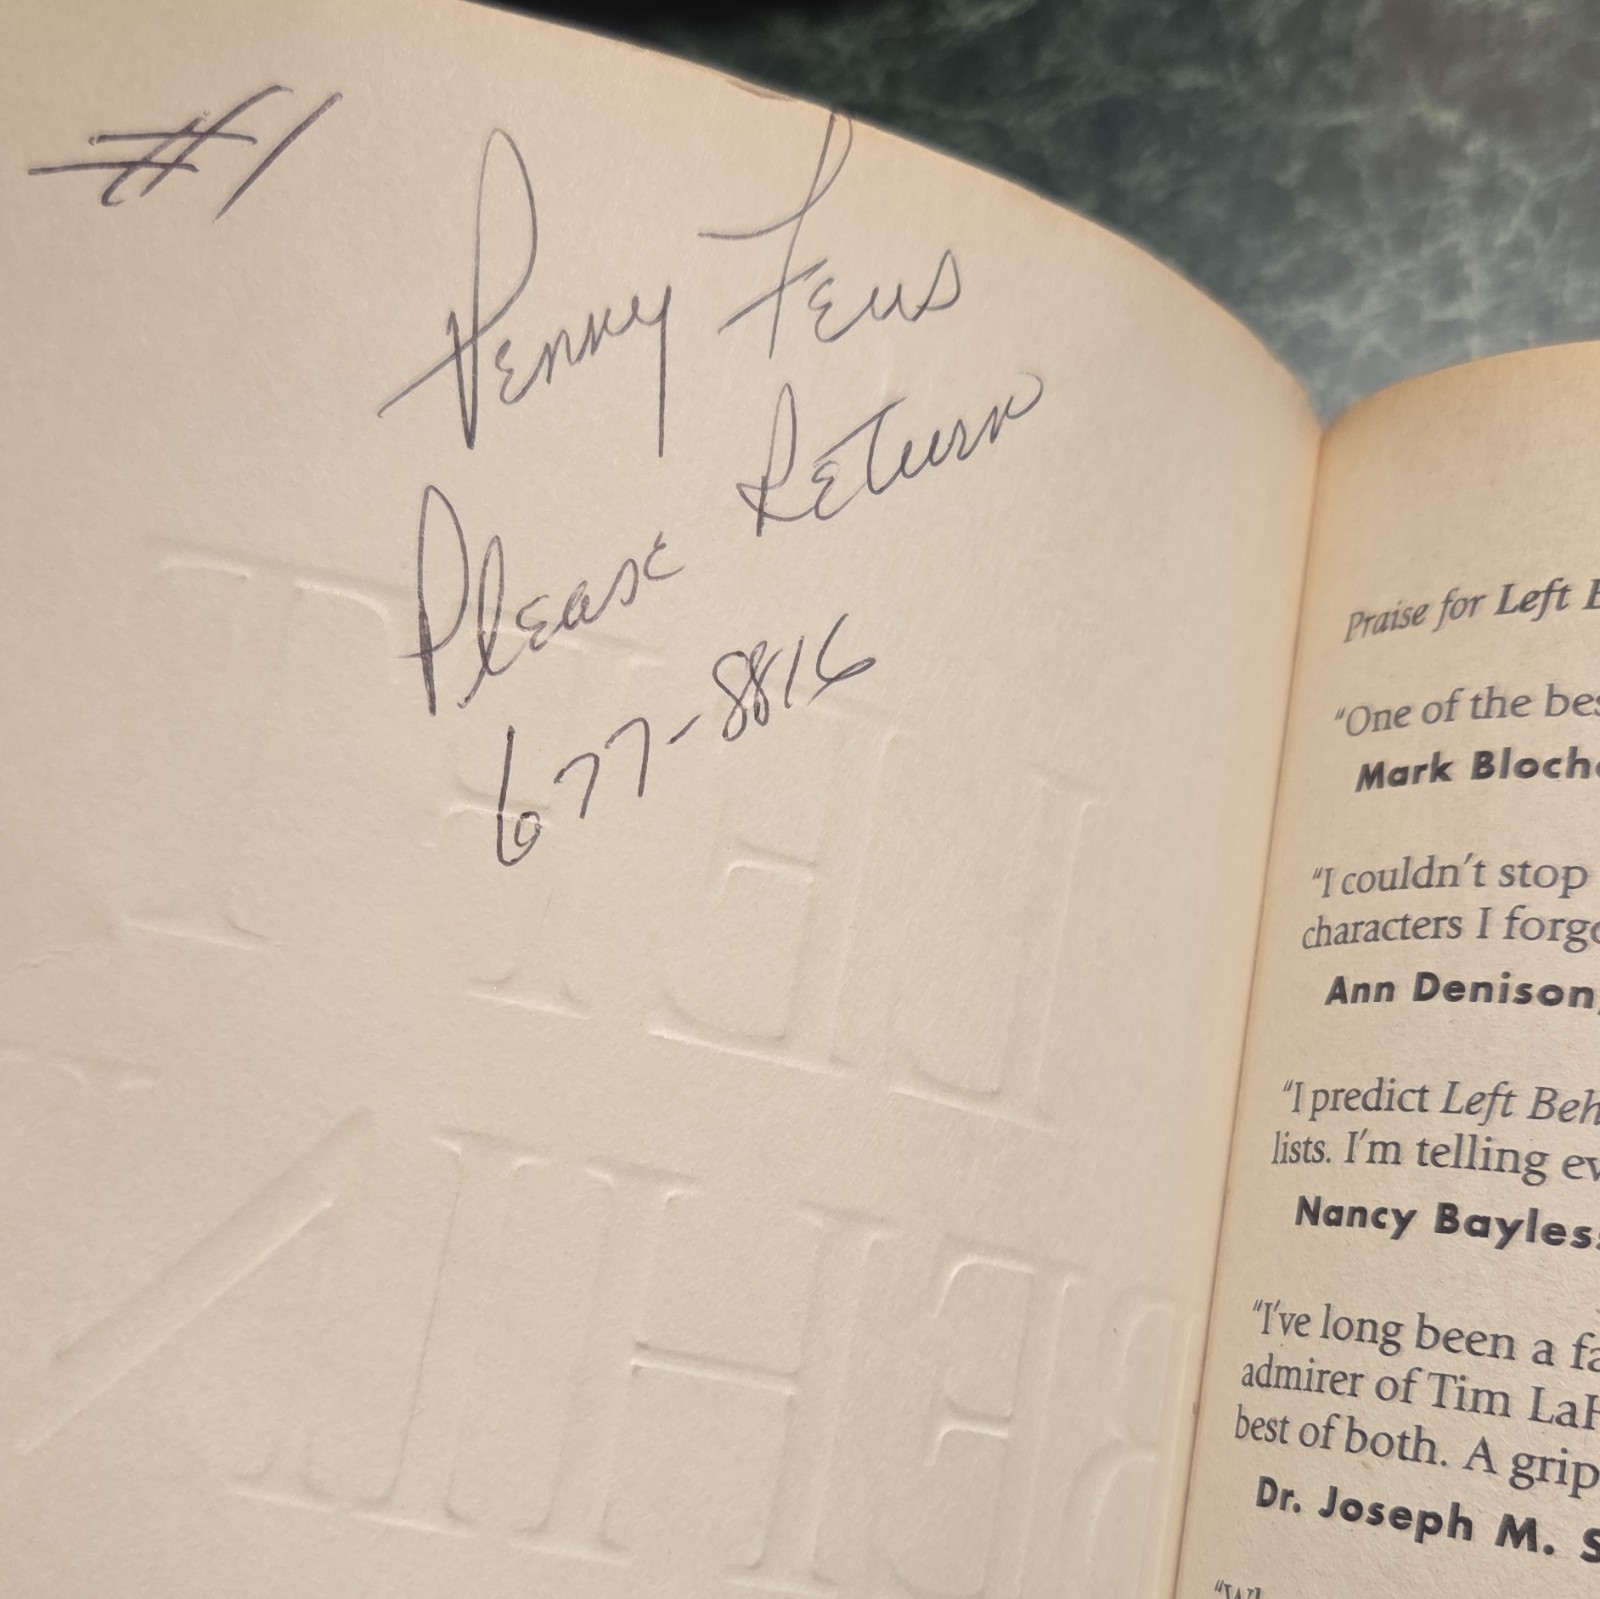 #1
Penny Feus
Please Return
677-8816
LEFT
BEHIN
Praise for Left B
"One of the bes
Mark Bloch
"I couldn't stop
characters I forgo
Ann Denison,
"I predict Left Beh
lists. I'm telling ev
Nancy Bayless
"I've long been a fa
admirer of Tim LaH
best of both. A grip
Dr. Joseph M. S